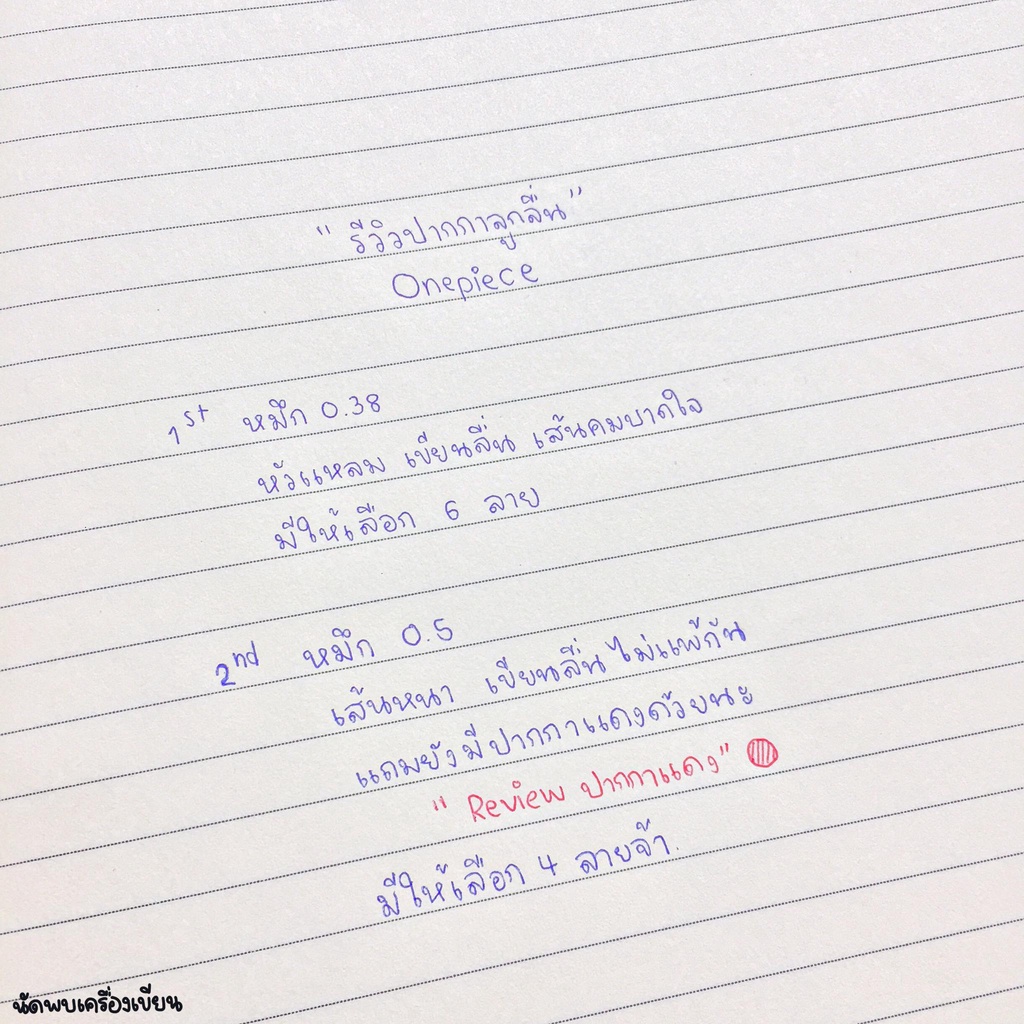 " รีวิวปากกาลูกลื่น "
Onepiece
1st หมึก 0.38
หัวแหลม เขียนลื่น เส้นคมบาดใจ
มีให้เลือก 6 ลาย
2nd หมึก 0.5
เส้นหนา เขียนลื่นไม่แพ้กัน
แถมยังมีปากกาแดงด้วยนะ
" Review ปากกาแดง "
มีให้เลือก 4 ลายจ้า.
นัดพบเครื่องเขียน